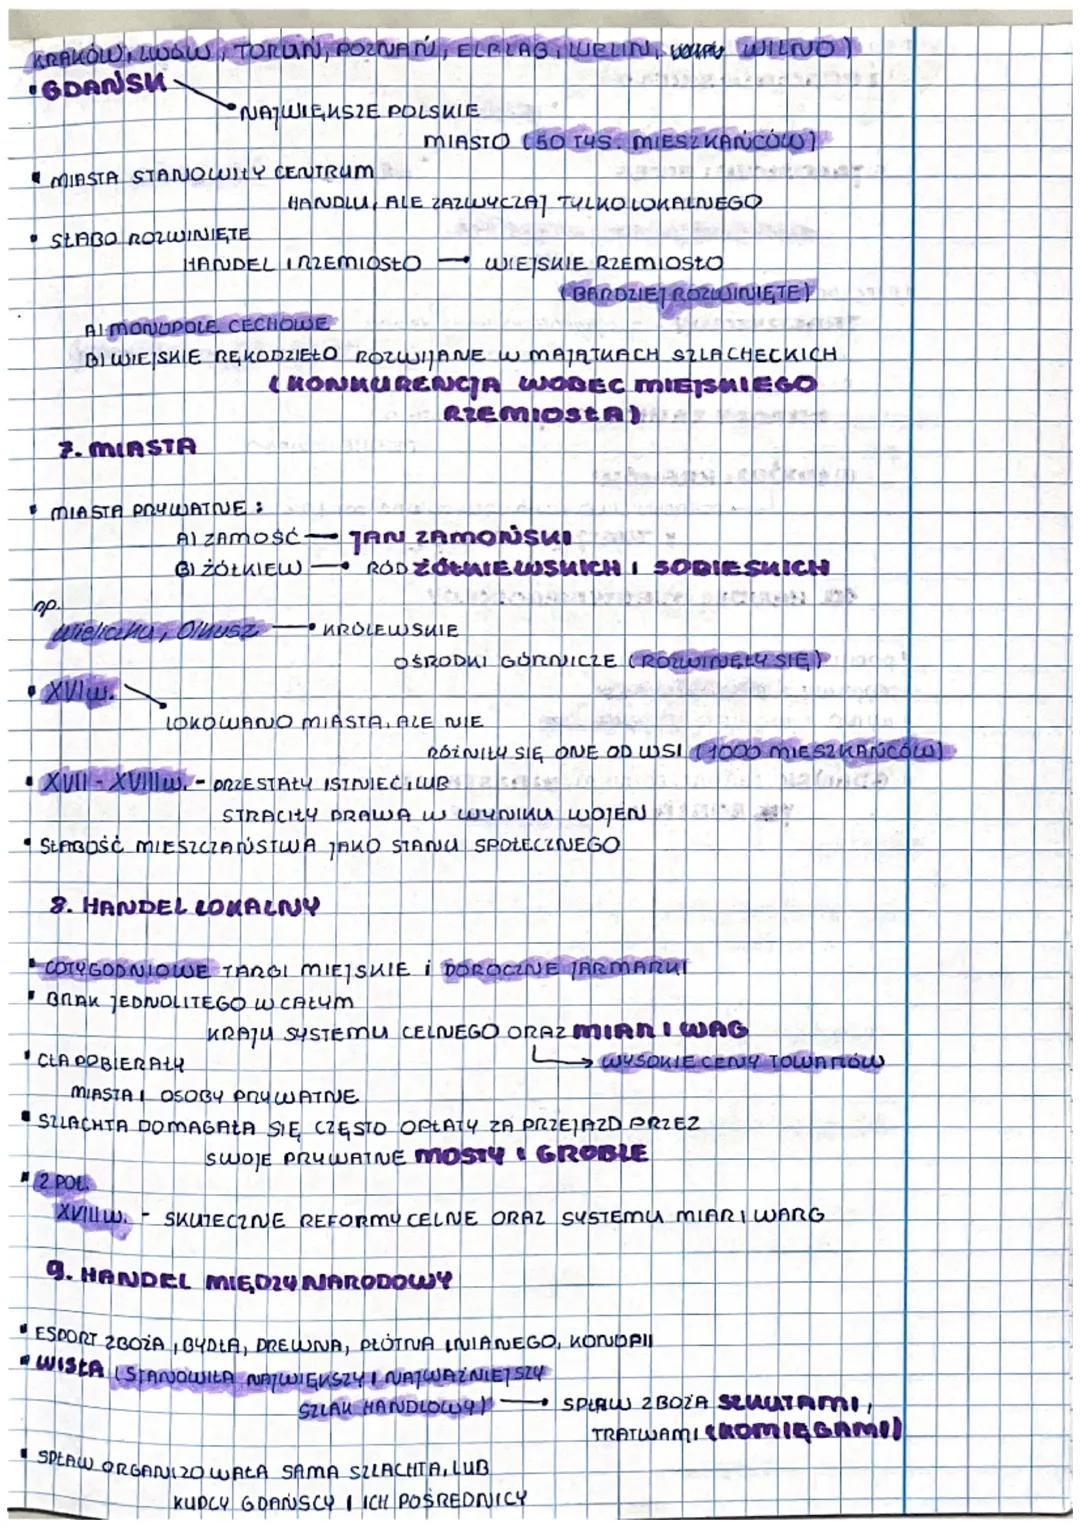 KRAKÓW, LWÓW, TORUŃ, POZNAŃ, ELBLĄG, LUBLIN, WILNO)
• GDAŃSK
• NAJWIĘKSZE POLSKIE
MIASTO (50 TYS. MIESZKAŃCÓW)
• MIASTA STANOWIŁY CENTRUM
HANDLU, ALE ZAZWYCZAJ TYLKO LOKALNEGO
• SŁABO ROZWINIĘTE
HANDEL I RZEMIOSŁO → WIEJSKIE RZEMIOSŁO
(BARDZIEJ ROZWINIĘTE)
A) MONOPOLE CECHOWE
B) WIEJSKIE RĘKODZIEŁO ROZWIJANE W MAJĄTKACH SZLACHECKICH
(KONKURENCJA WOBEC MIEJSKIEGO
RZEMIOSŁA)
7. MIASTA
• MIASTA PRYWATNE:
A) ZAMOŚĆ → JAN ZAMOŃSKI
B) ŻÓŁKIEW → RÓD ŻÓŁKIEWSKICH I SOBIESKICH
np.
Wieliczka, Olkusz → KRÓLEWSKIE
OŚRODKI GÓRNICZE (ROZWINĘŁY SIĘ)
• XVI w.
LOKOWANO MIASTA, ALE NIE
RÓŻNIŁY SIĘ ONE OD WSI (1000 MIESZKAŃCÓW)
• XVII - XVIII w. - PRZESTAŁY ISTNIEĆ, LUB
STRACIŁY PRAWA W WYNIKU WOJEN
• SŁABOŚĆ MIESZCZAŃSTWA JAKO STANU SPOŁECZNEGO
8. HANDEL LOKALNY
• COTYGODNIOWE TARGI MIEJSKIE i DOROCZNE JARMARKI
• BRAK JEDNOLITEGO W CAŁYM
KRAJU SYSTEMU CELNEGO ORAZ MIAR I WAG
→ WYSOKIE CENY TOWARÓW
• CŁA POBIERAŁY
MIASTA I OSOBY PRYWATNE
• SZLACHTA DOMAGAŁA SIĘ CZĘSTO OPŁATY ZA PRZEJAZD PRZEZ
SWOJE PRYWATNE MOSTY I GROBLE
• 2 POŁ.
XVIII w. - SKUTECZNE REFORMY CELNE ORAZ SYSTEMU MIAR I WARG
9. HANDEL MIĘDZYNARODOWY
• ESPORT ZBOŻA, BYDŁA, DREWNA, PŁÓTNA LNIANEGO, KONOPII
• WISŁA (STANOWIŁA NAJWIĘKSZY I NAJWAŻNIEJSZY
SZLAK HANDLOWY) → SPŁAW ZBOŻA SZKUTAMI,
TRATWAMI (KOMIĘGAMI)
• SPŁAW ORGANIZOWAŁA SAMA SZLACHTA, LUB
KUPCY GDAŃSCY I ICH POŚREDNICY